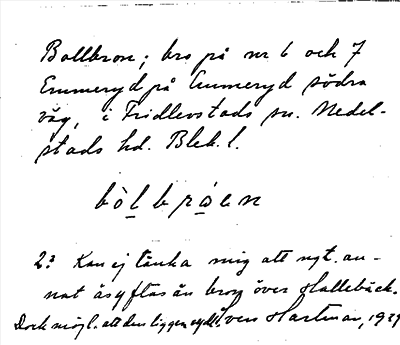 Bollbron; bro på nr 6 och 7
Emmeryd på Emmeryd södra
väg, i Fridlevstads sn. Medel-
stads hd. Blek. l.
bòlbråen
2? Kan ej tänka mig att ngt. an-
nat åsyftas än bron över Hallebäck.
Dock möjl. att den ligger sydl. även Hartmar, 19